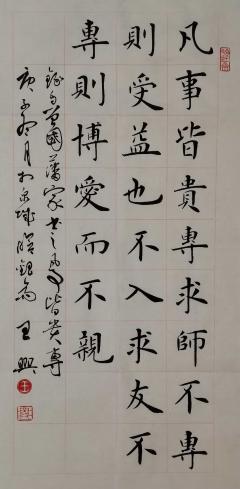 凡事皆貴專求師不專
則受益也不入求友不
專則博愛而不親
錄自曾國藩家書之凡事皆貴專
庚子冬月於泉城 王興